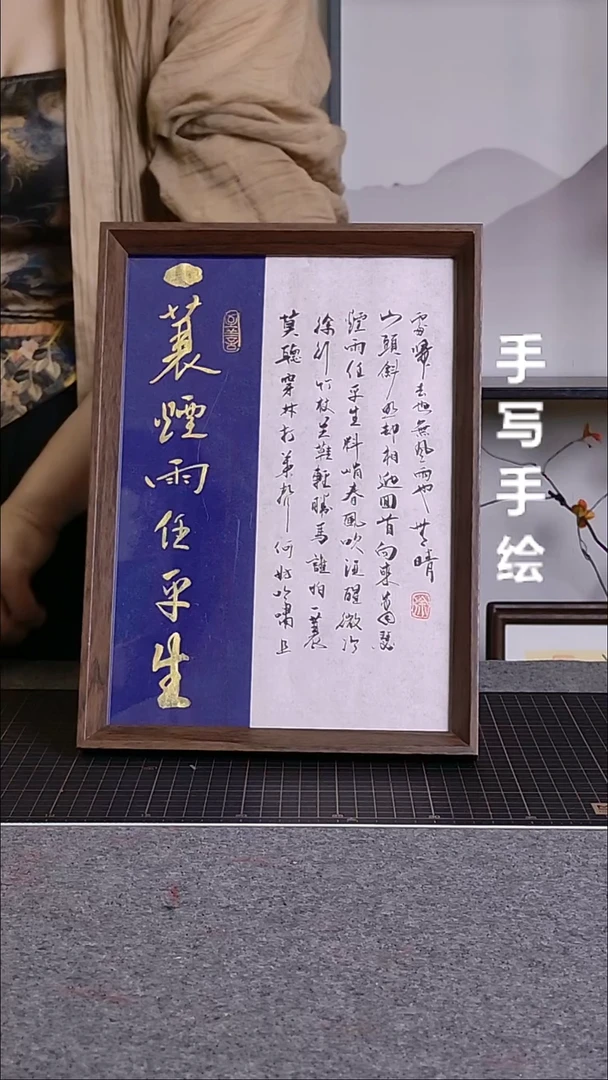 一蓑煙雨任平生
莫聽穿林打葉聲何妨吟嘯且
徐行竹杖芒鞋輕勝馬誰怕一蓑
煙雨任平生料峭春風吹酒醒微冷
山頭斜照却相迎回首向來蕭瑟
處歸去也無風雨也無晴
手写手绘